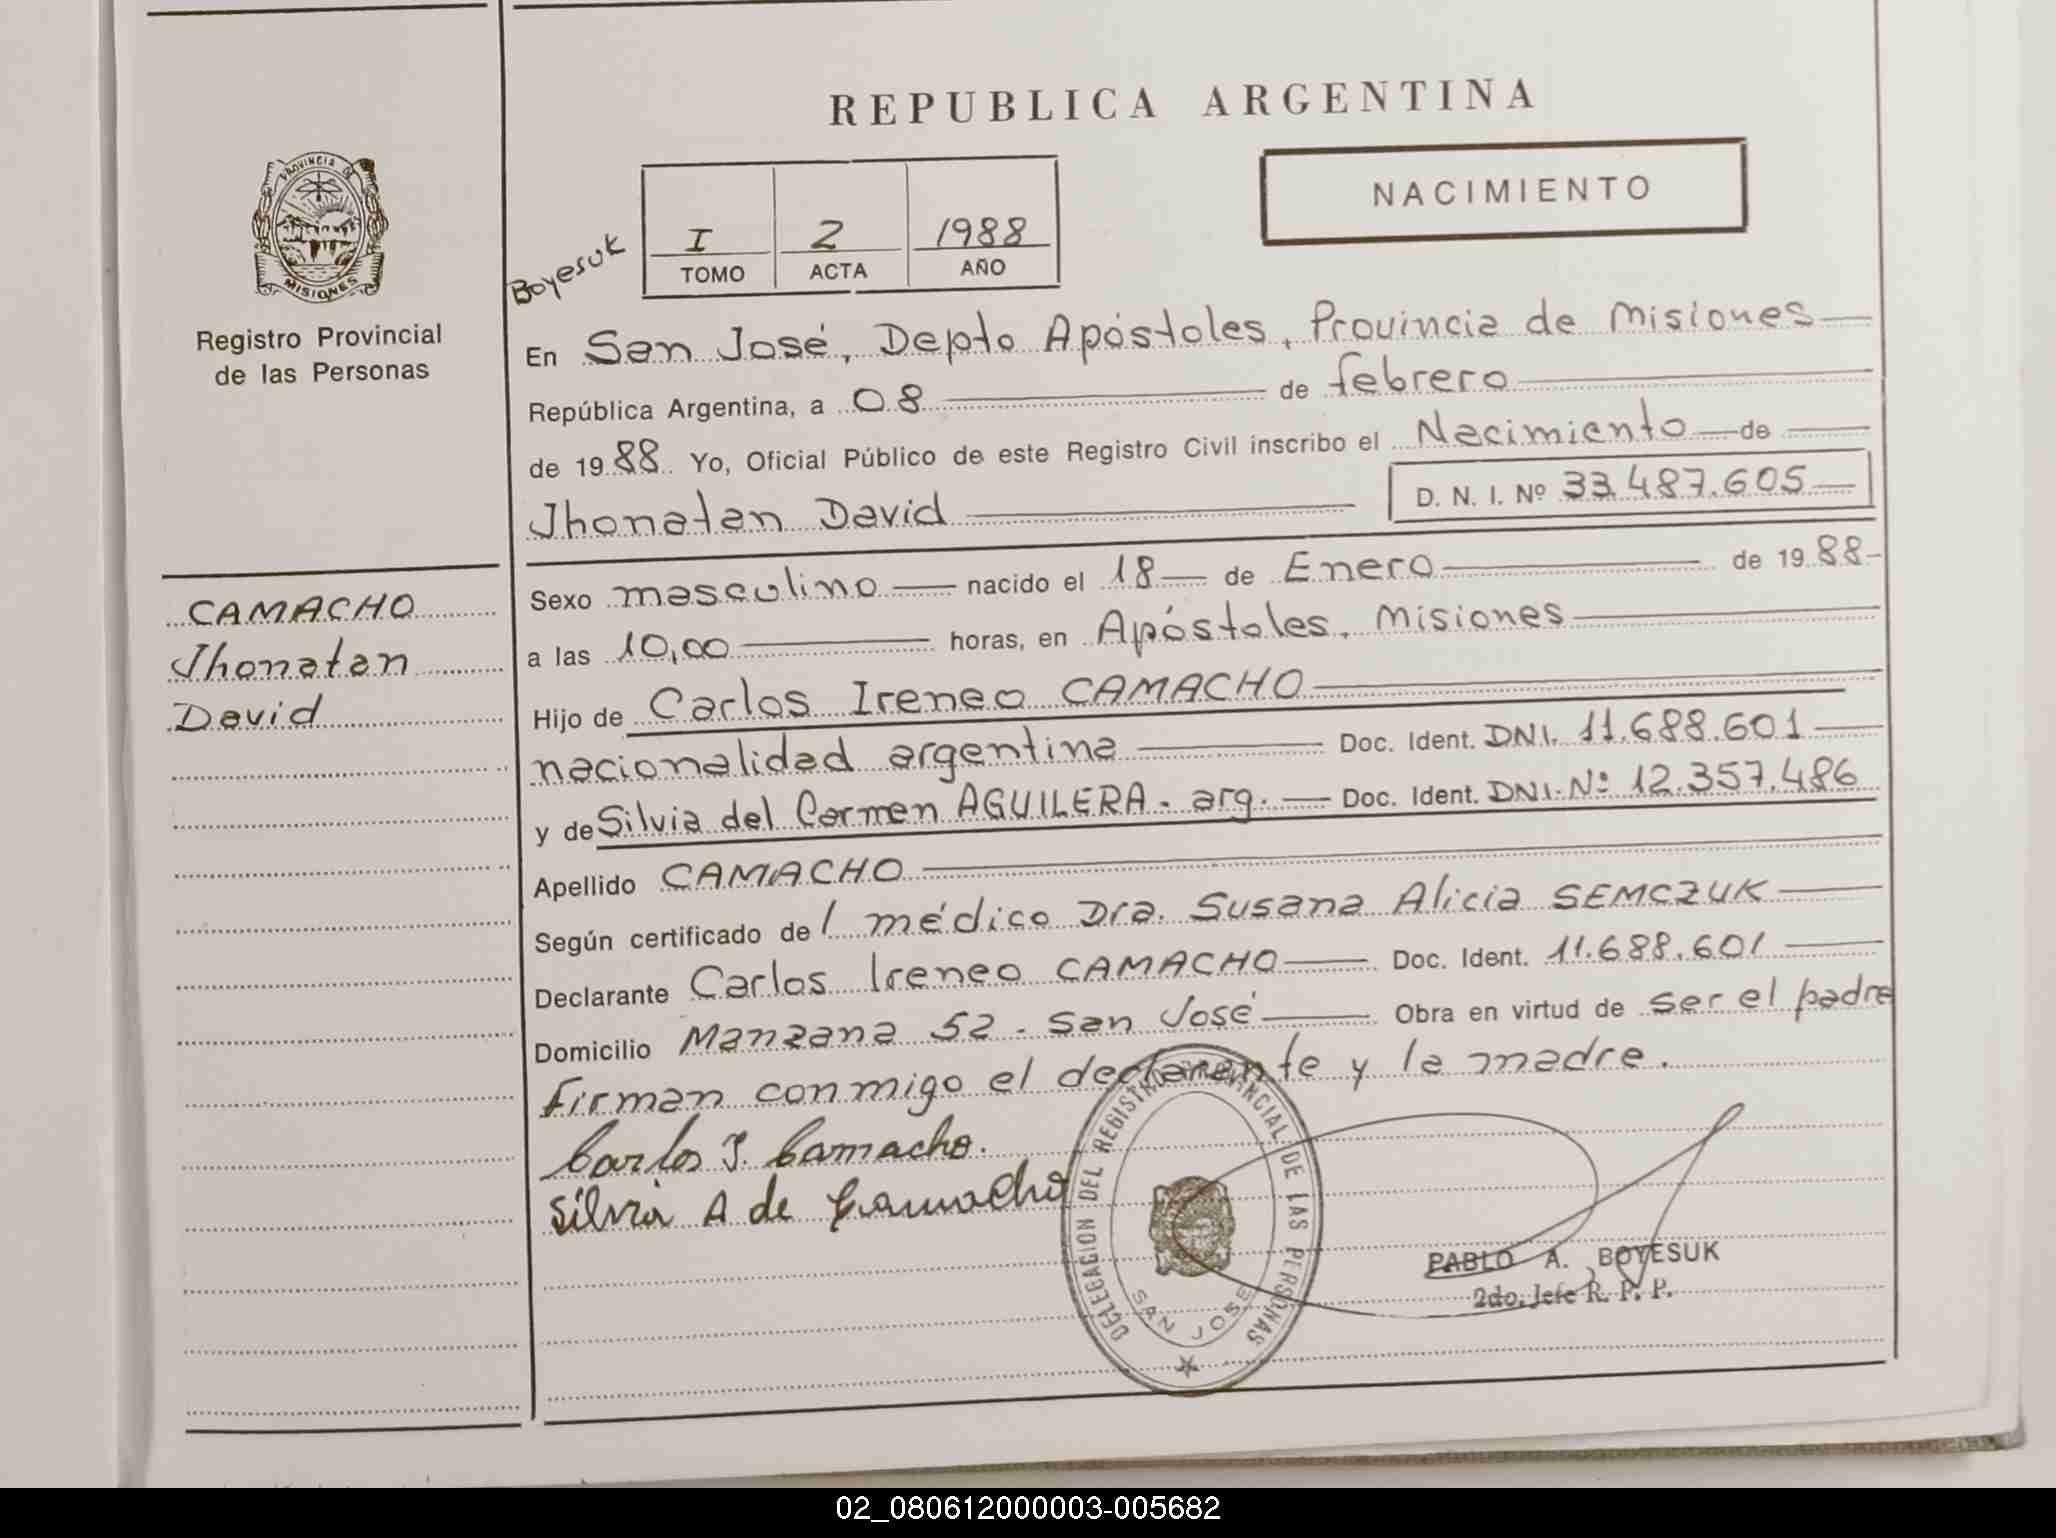 REPUBLICA ARGENTINA
NACIMIENTO
PROVINCIA DE
MISIONES
Registro Provincial
de las Personas
Boyesuk
I 2 1988
TOMO ACTA AÑO
CAMACHO
Jhonatan
David
En San José, Depto Apóstoles, Provincia de Misiones
República Argentina, a 08 de febrero
de 1988 Yo, Oficial Público de este Registro Civil inscribo el Nacimiento de
Jhonatan David D. N. I. Nº 33.487.605
Sexo masculino nacido el 18 de Enero de 1988
a las 10,00 horas, en Apóstoles, Misiones
Hijo de Carlos Ireneo CAMACHO
nacionalidad argentina Doc. Ident. DNI. 11.688.601
y de Silvia del Carmen AGUILERA. arg. Doc. Ident. DNI. Nº 12.357.486
Apellido CAMACHO
Según certificado del médico Dra. Susana Alicia SEMCZUK
Declarante Carlos Ireneo CAMACHO Doc. Ident. 11.688.601
Domicilio Manzana 52. San José Obra en virtud de ser el padre
Firman conmigo el declarante y la madre.
Carlos I. Camacho.
Silvia A de Camacho
DELEGACION DEL REGISTRO PROVINCIAL DE LAS PERSONAS
SAN JOSE
PABLO A. BOYESUK
2do. Jefe R. P. P.
02_080612000003-005682